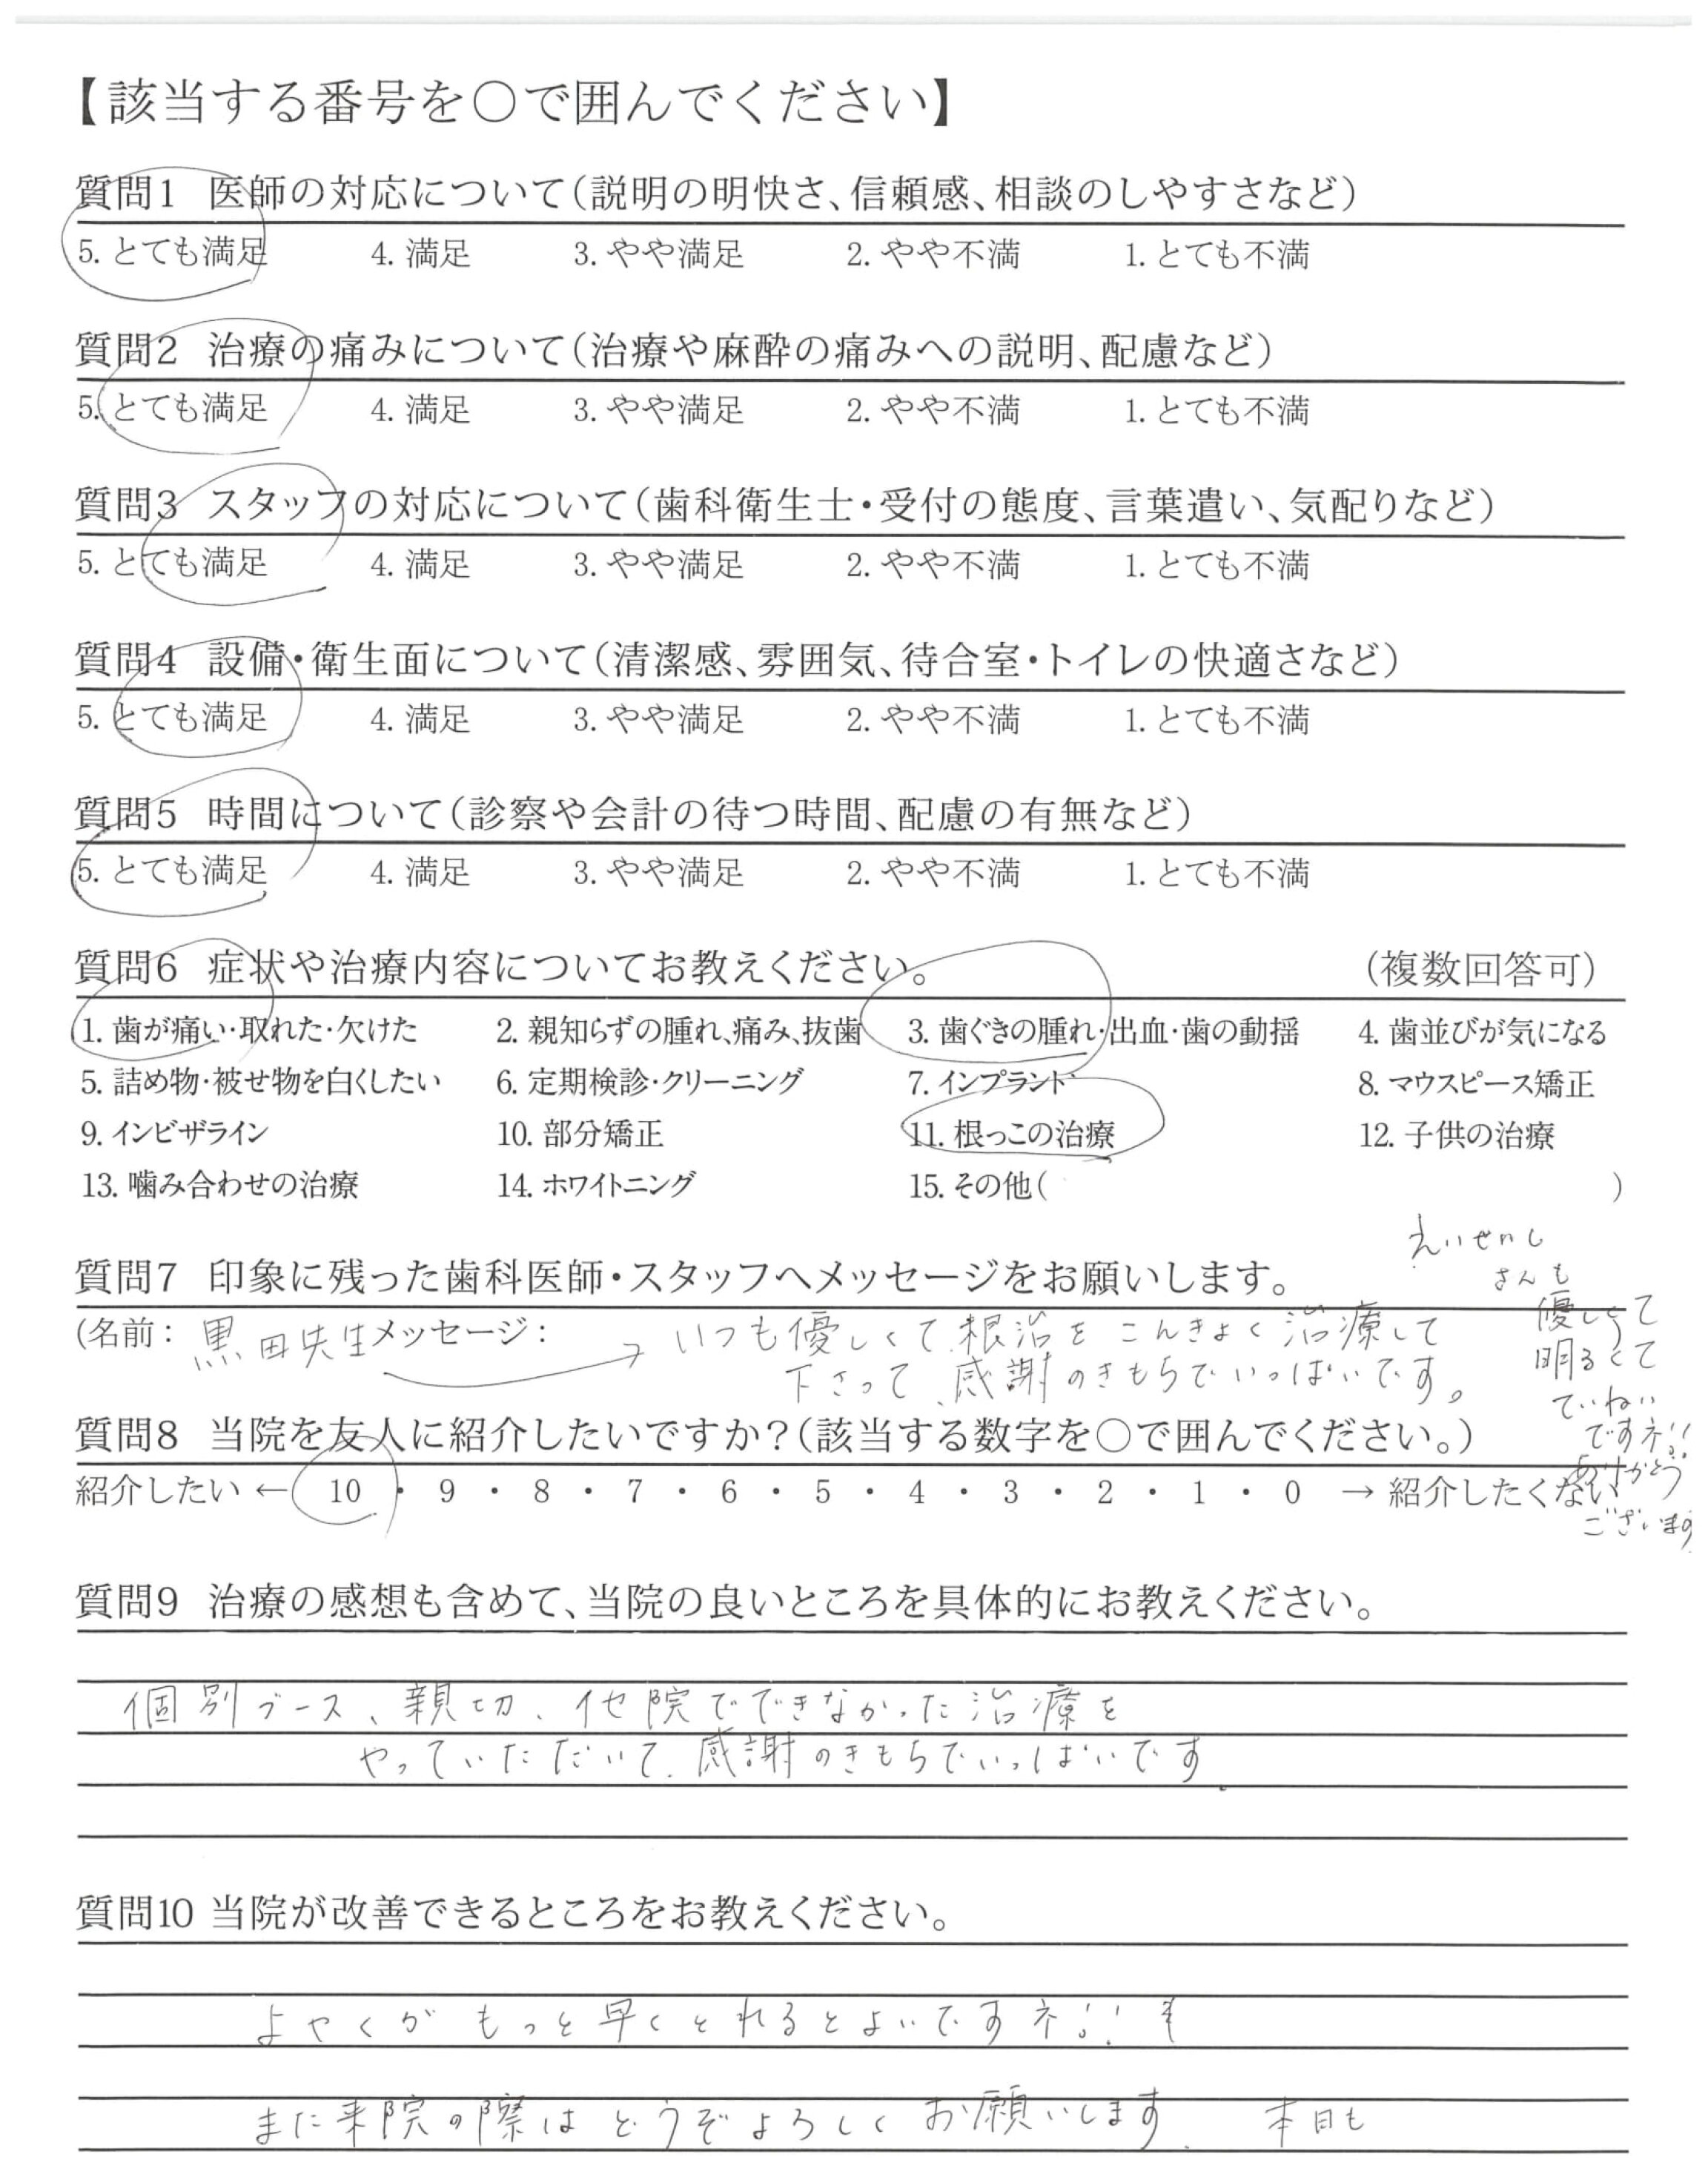 【該当する番号を○で囲んでください】
質問1 医師の対応について(説明の明快さ、信頼感、相談のしやすさなど)
5. とても満足 4. 満足 3. やや満足 2. やや不満 1. とても不満
質問2 治療の痛みについて(治療や麻酔の痛みへの説明、配慮など)
5. とても満足 4. 満足 3. やや満足 2. やや不満 1. とても不満
質問3 スタッフの対応について(歯科衛生士・受付の態度、言葉遣い、気配りなど)
5. とても満足 4. 満足 3. やや満足 2. やや不満 1. とても不満
質問4 設備・衛生面について(清潔感、雰囲気、待合室・トイレの快適さなど)
5. とても満足 4. 満足 3. やや満足 2. やや不満 1. とても不満
質問5 時間について(診察や会計の待つ時間、配慮の有無など)
5. とても満足 4. 満足 3. やや満足 2. やや不満 1. とても不満
質問6 症状や治療内容についてお教えください。 (複数回答可)
1. 歯が痛い・取れた・欠けた 2. 親知らずの腫れ、痛み、抜歯 3. 歯ぐきの腫れ・出血・歯の動揺 4. 歯並びが気になる
5. 詰め物・被せ物を白くしたい 6. 定期検診・クリーニング 7. インプラント 8. マウスピース矯正
9. インビザライン 10. 部分矯正 11. 根っこの治療 12. 子供の治療
13. 噛み合わせの治療 14. ホワイトニング 15. その他( )
質問7 印象に残った歯科医師・スタッフへメッセージをお願いします。
(名前: 黒田先生 メッセージ: → いつも優しくて、根治をこんきよく治療して
下さって、感謝のきもちでいっぱいです。
えいせいし
さんも
優しくて
明るくて
ていねい
ですネ!!
ありがとう
ございます
質問8 当院を友人に紹介したいですか?(該当する数字を○で囲んでください。)
紹介したい ← 10 ・ 9 ・ 8 ・ 7 ・ 6 ・ 5 ・ 4 ・ 3 ・ 2 ・ 1 ・ 0 → 紹介したくない
質問9 治療の感想も含めて、当院の良いところを具体的にお教えください。
個別ブース、親切、他院でできなかった治療を
やっていただいて、感謝のきもちでいっぱいです。
質問10 当院が改善できるところをお教えください。
よやくがもっと早くとれるとよいですネ!!
また来院の際はどうぞよろしくお願いします。 本日も